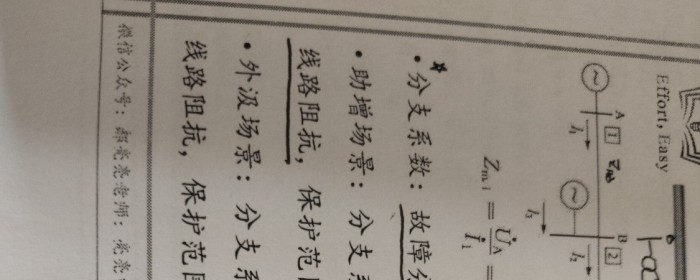 Effort, Easy
A 1
I₁
B 2
I₃
I₂
Zₘ₁ = U̇A / İ₁ =
• 分支系数：故障分
• 助增场景：分支
线路阻抗，保护范
• 外汲场景：分支系
线路阻抗，保护范围
微信公众号：郝亮亮老师：亮亮